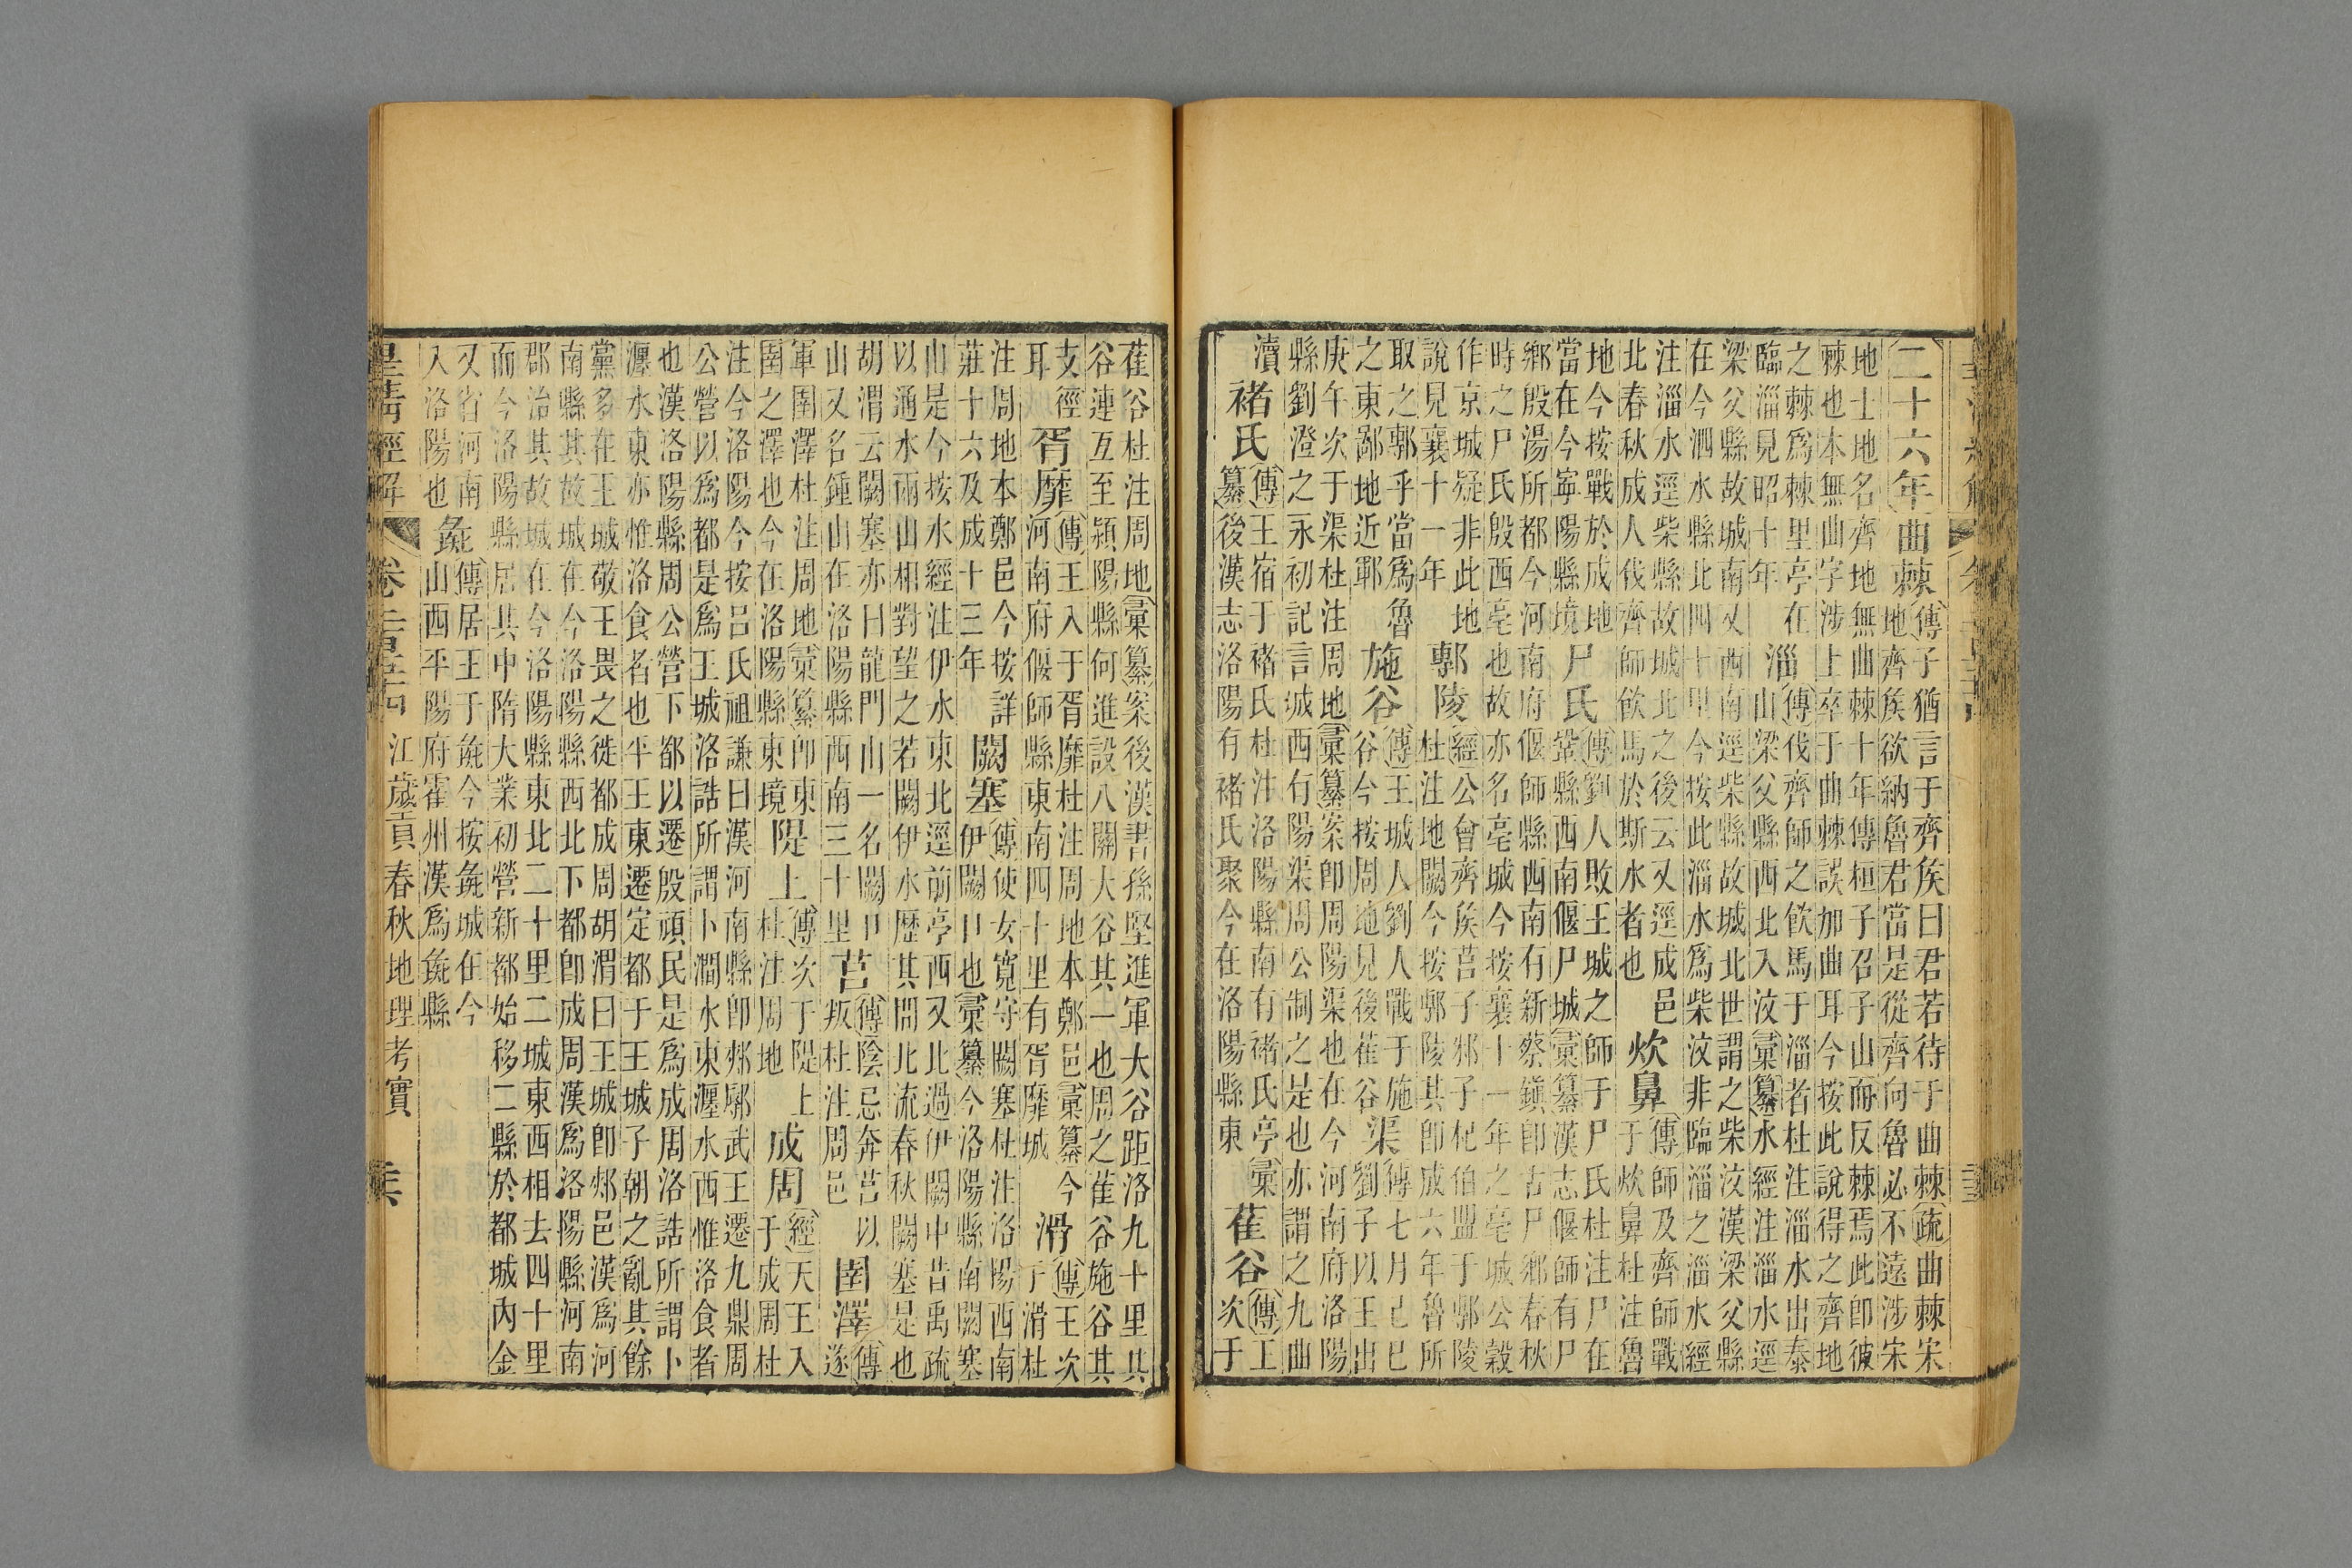 二十六年
曲棘
傳子猶言于齊矦曰君若待于曲棘疏曲棘宋
地齊矦欲納魯君當是從齊向魯必不遠涉宋
地土地名齊地無曲棘十年傳桓子召子山而反棘焉此卽彼
棘也本無曲字涉上卒于曲棘誤加曲耳今按此說得之齊地
之棘爲棘里亭在
臨淄見昭十年
淄
傳伐齊師之飲馬于淄者杜注淄水出泰
山梁父縣西北入汶彙纂水經注淄水逕
梁父縣故城南又西南逕柴縣故城北世謂之柴汶漢梁父縣
在今泗水縣北四十里今按此淄水爲柴汶非臨淄之淄水經
注淄水逕柴縣故城北之後云又逕成邑
北春秋成人伐齊師飲馬於斯水者也
炊鼻
傳師及齊師戰
于炊鼻杜注魯
地今按戰於成地
當在今寧陽縣境
尸氏
傳劉人敗王城之師于尸氏杜注尸在
鞏縣西南偃尸城彙纂漢志偃師有尸
鄉殷湯所都今河南府偃師縣西南有新蔡鎮卽古尸鄉春秋
時之尸氏殷西亳也故亦名亳城今按襄十一年之亳城公穀
作京城疑非此地
說見襄十一年
鄟陵
經公會齊矦莒子邾子杞伯盟于鄟陵
杜注地闕今按鄟陵其卽成六年魯所
取之鄟乎當爲魯
之東鄙地近鄆
施谷
傳王城人劉人戰于施
谷今按周地見後萑谷
渠
傳七月己巳
劉子以王出
庚午次于渠杜注周地彙纂案卽周陽渠也在今河南府洛陽
縣劉澄之永初記言城西有陽渠周公制之是也亦謂之九曲
瀆
褚氏
傳王宿于褚氏杜注洛陽縣南有褚氏亭彙
纂後漢志洛陽有褚氏聚今在洛陽縣東
萑谷
傳王
次于
萑谷杜注周地彙纂案後漢書孫堅進軍大谷距洛九十里其
谷連互至潁陽縣何進設八關大谷其一也周之萑谷施谷其
支徑
耳
胥靡
傳王入于胥靡杜注周地本鄭邑彙纂今
河南府偃師縣東南四十里有胥靡城
滑
傳王次
于滑杜
注周地本鄭邑今按詳
莊十六及成十三年
闕塞
傳使女寬守闕塞杜注洛陽西南
伊闕口也彙纂今洛陽縣南闕塞
山是今按水經注伊水東北逕前亭西又北過伊闕中昔禹疏
以通水兩山相對望之若闕伊水歷其閒北流春秋闕塞是也
胡渭云闕塞亦曰龍門山一名闕口
山又名鍾山在洛陽縣西南三十里
莒
傳陰忌奔莒以
叛杜注周邑
圉澤
傳
遂
軍圉澤杜注周地彙纂卽東
圉之澤也今在洛陽縣東境
隄上
傳次于隄上
杜注周地
成周
經天王入
于成周杜
注今洛陽今按呂氏祖謙曰漢河南縣卽郟鄏武王遷九鼎周
公營以爲都是爲王城洛誥所謂卜澗水東瀍水西惟洛食者
也漢洛陽縣周公營下都以遷殷頑民是爲成周洛誥所謂卜
瀍水東亦惟洛食者也平王東遷定都于王城子朝之亂其餘
黨多在王城敬王畏之徙都成周胡渭曰王城卽郟邑漢爲河
南縣其故城在今洛陽縣西北下都卽成周漢爲洛陽縣河南
郡治其故城在今洛陽縣東北二十里二城東西相去四十里
而今洛陽縣居其中隋大業初營新都始移二縣於都城內金
又省河南
入洛陽也
彘
傳居王于彘今按彘城在今
山西平陽府霍州漢爲彘縣
皇清經解 卷二百五十四 江歲貢春秋地理考實